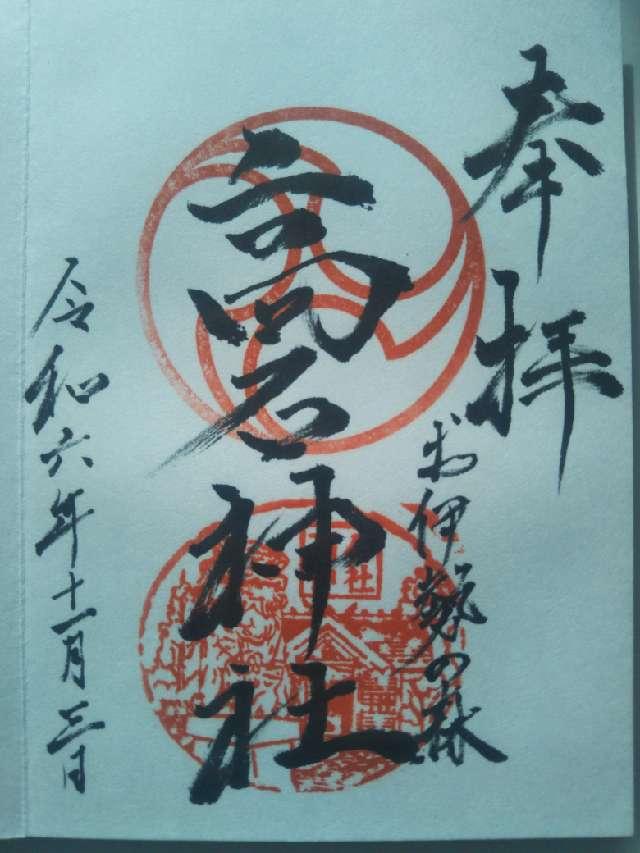 奉拝
お伊勢の森
高石神社
令和六年十一月三日